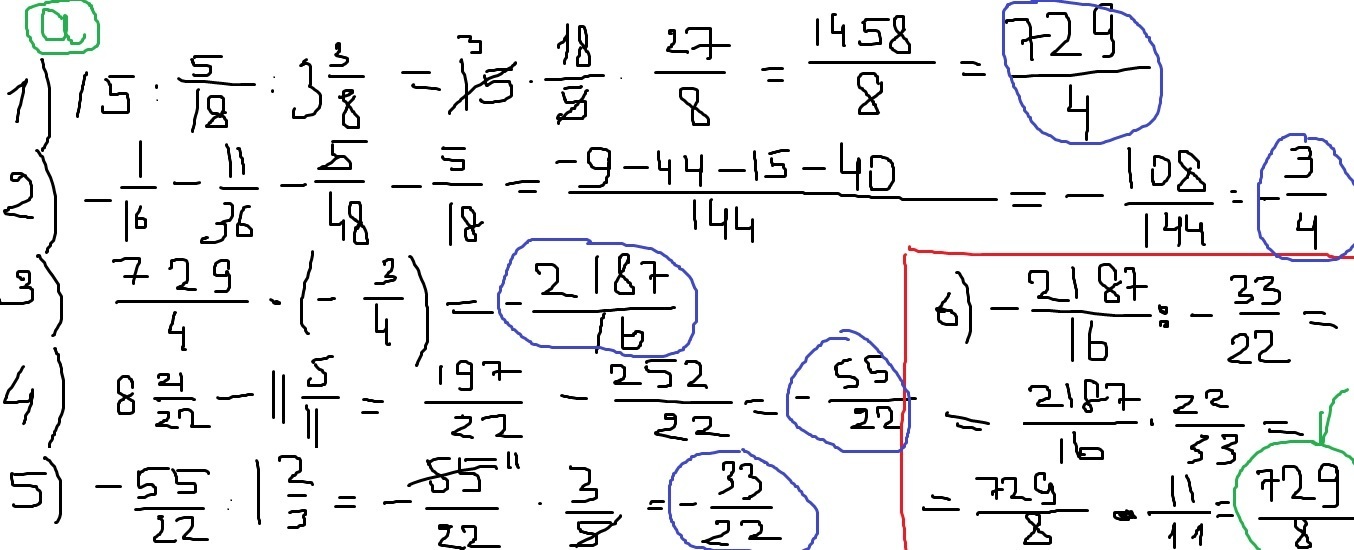 a
1) 15 : 5/18 : 3 3/8 = 15 3 · 18/5 · 27/8 = 1458/8 = 729/4
2) - 1/16 - 11/36 - 5/48 - 5/18 = (-9-44-15-40)/144 = - 108/144 = - 3/4
3) 729/4 · (- 3/4) = - 2187/16
4) 8 21/22 - 11 5/11 = 197/22 - 252/22 = - 55/22
5) - 55/22 : 1 2/3 = - 55 11/22 · 3/5 = - 33/22
6) - 2187/16 : - 33/22 =
= 2187/16 · 22/33 =
= 729/8 · 11/11 = 729/8